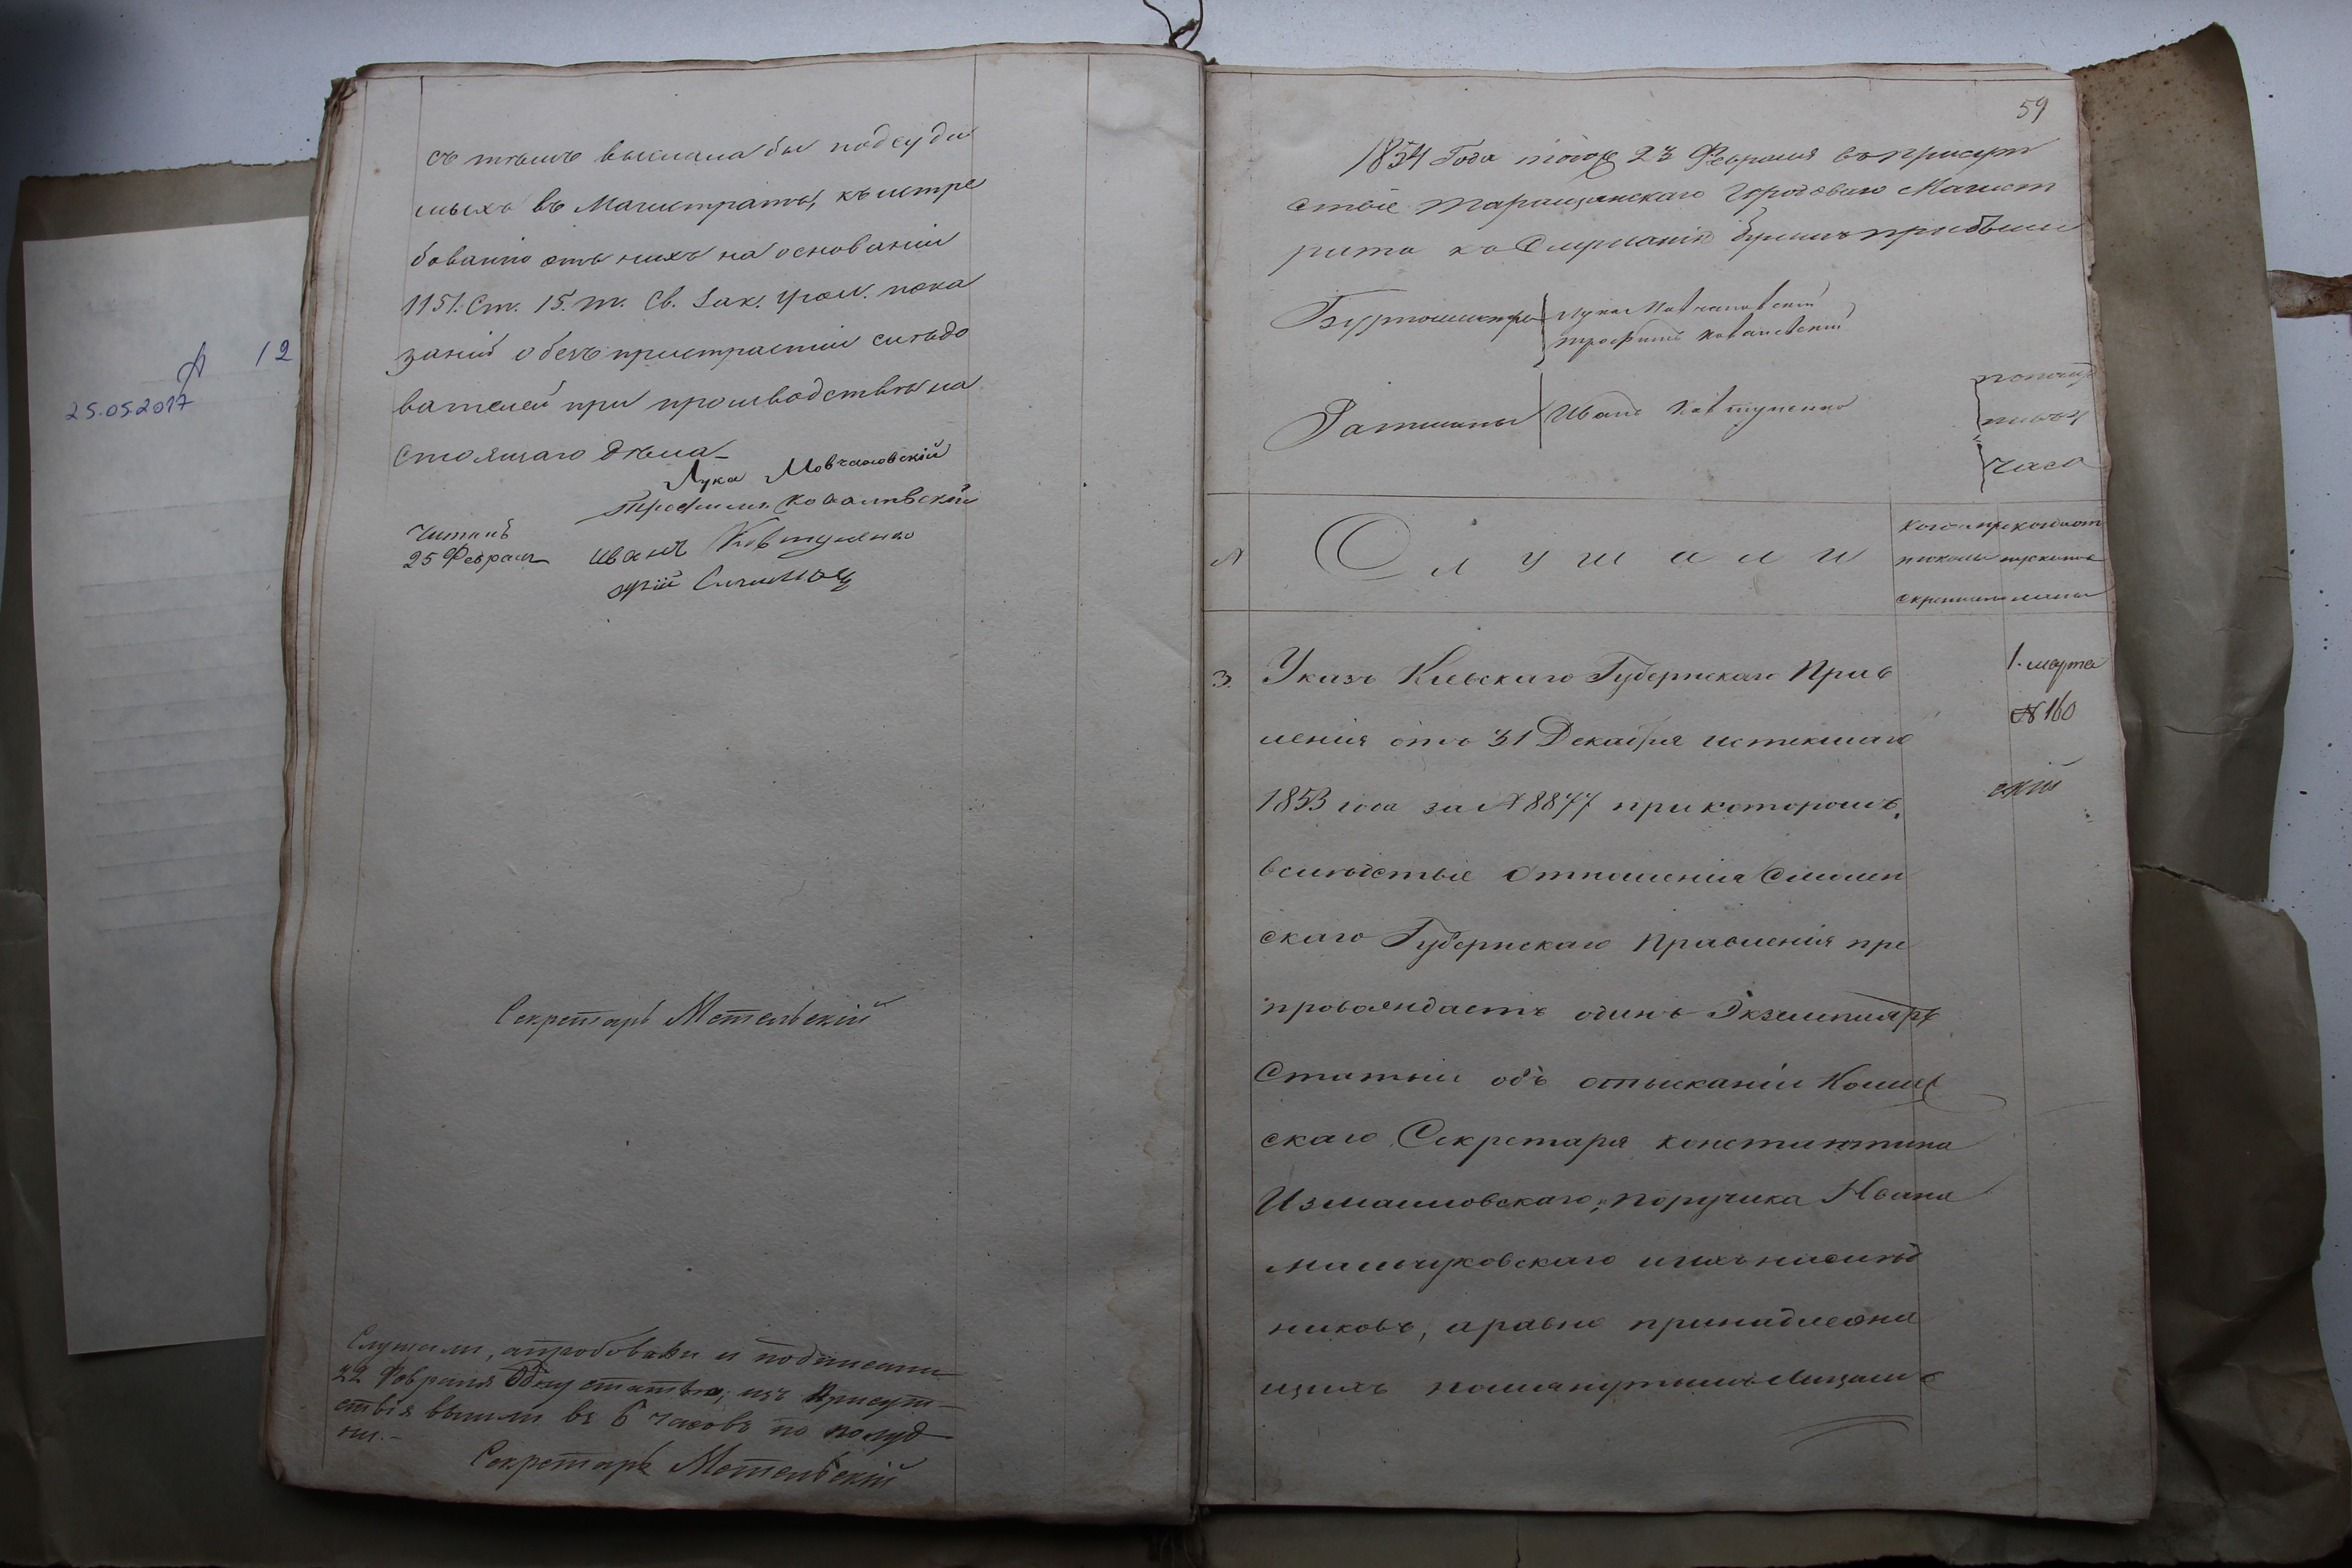 12
25.05.2017
съ тѣмъ выслала бы подсуди
мыхъ въ Магистратъ, къ истре
бованію отъ нихъ на основаніи
1151. Ст. 15. т. Св. Зак. Угол. пока
заній о безпристрастіи слѣдо
вателей при производствѣ на
стоящаго дѣла
Лука Мовчановскій
Трофимъ Ковалевскій
Читалъ
25 Февраля
Иванъ Ковтуненко
Секретарь Метельскій
Слушали, апробовали и подписали
22 Февраля одну статью, изъ присут
ствія вышли въ 6 часовъ по полуд
ни.
Секретарь Метельскій
59
1854 Года 23 Февраля въ присут
ствіе Таращанскаго Городоваго Магист
рата къ слушанію бумагъ прибыли
Бургомистры Лука Мовчановскій
Трофимъ Ковалевскій
Ратманы Иванъ Ковтуненко
часа
№ Слушали
3. Указъ Кіевскаго Губернскаго Прав
ленія отъ 31 Декабря истекшаго
1853 года за № 8877 при которомъ,
вслѣдствіе отношенія Смолен
скаго Губернскаго Правленія пре
провождаетъ одинъ Экземпляръ
Статьи объ отысканіи Коллеж
скаго Секретаря Константина
Измаиловскаго, Поручика Ивана
и ихъ наслѣд
никовъ, а равно принадлежа
щихъ помянутымъ лицамъ
1. марта
№ 160